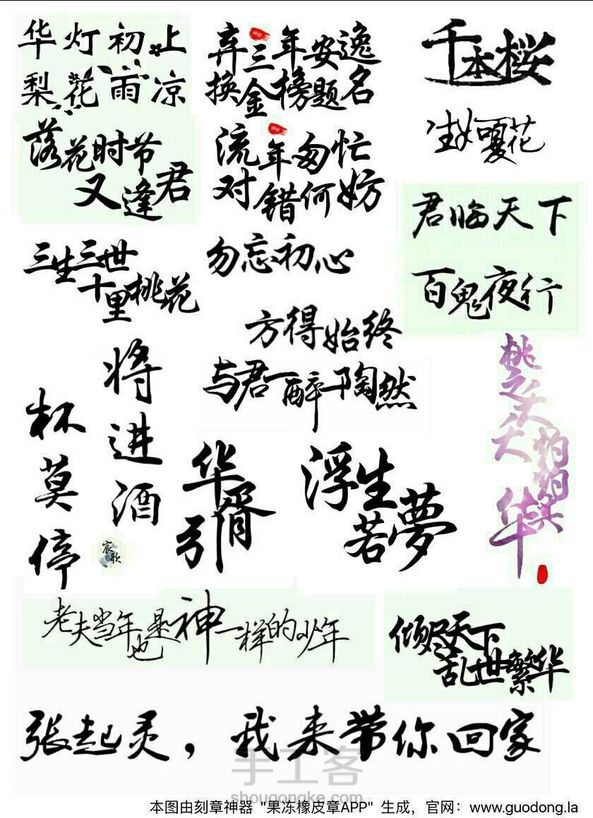 华灯初上
梨花雨凉
弃三年安逸
换金榜题名
千本桜
生如夏花
落花时节
又逢君
流年匆忙
对错何妨
君临天下
百鬼夜行
三生三世
十里桃花
勿忘初心
方得始终
与君一醉一陶然
将进酒
杯莫停
华胥引
浮生若夢
桃之夭夭
灼灼其华
老夫当年也是神一样的少年
倾尽天下
乱世繁华
张起灵，我来带你回家
手工客
shougongke.com
本图由刻章神器 "果冻橡皮章APP" 生成，官网：www.guodong.la